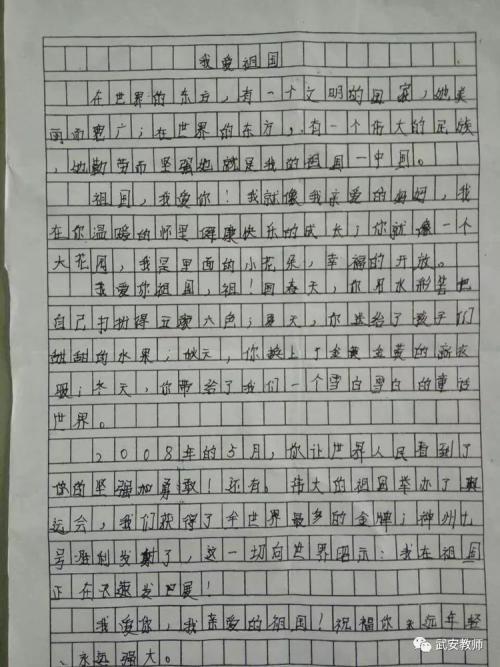 我爱祖国
在世界的东方，有一个文明的国家，她美
丽而宽广；在世界的东方，有一个伟大的民族
，她勤劳而坚强她就是我的祖国一中国。
祖国，我爱你！我就像我亲爱的妈妈，我
在你温暖的怀里健康快乐的成长；你就像一个
大花园，我是里面的小花朵，幸福的开放。
我爱你祖国，祖！国春天，你用水彩笔把
自己打扮得五颜六色；夏天，你送给了孩子们
甜甜的水果；秋天，你换上了金黄金黄的新衣
服；冬天，你带给了我们一个雪白雪白的童话
世界。
2008年的5月，你让世界人民看到了
你的坚强加勇敢！还有。伟大的祖国举办了奥
运会，我们获得了全世界最多的金牌；神州七
号胜利发射了，这一切向世界昭示：我在祖国
正在飞速发展！
我爱你，我亲爱的祖国！祝福你永远年轻
、永远强大。
武安教师